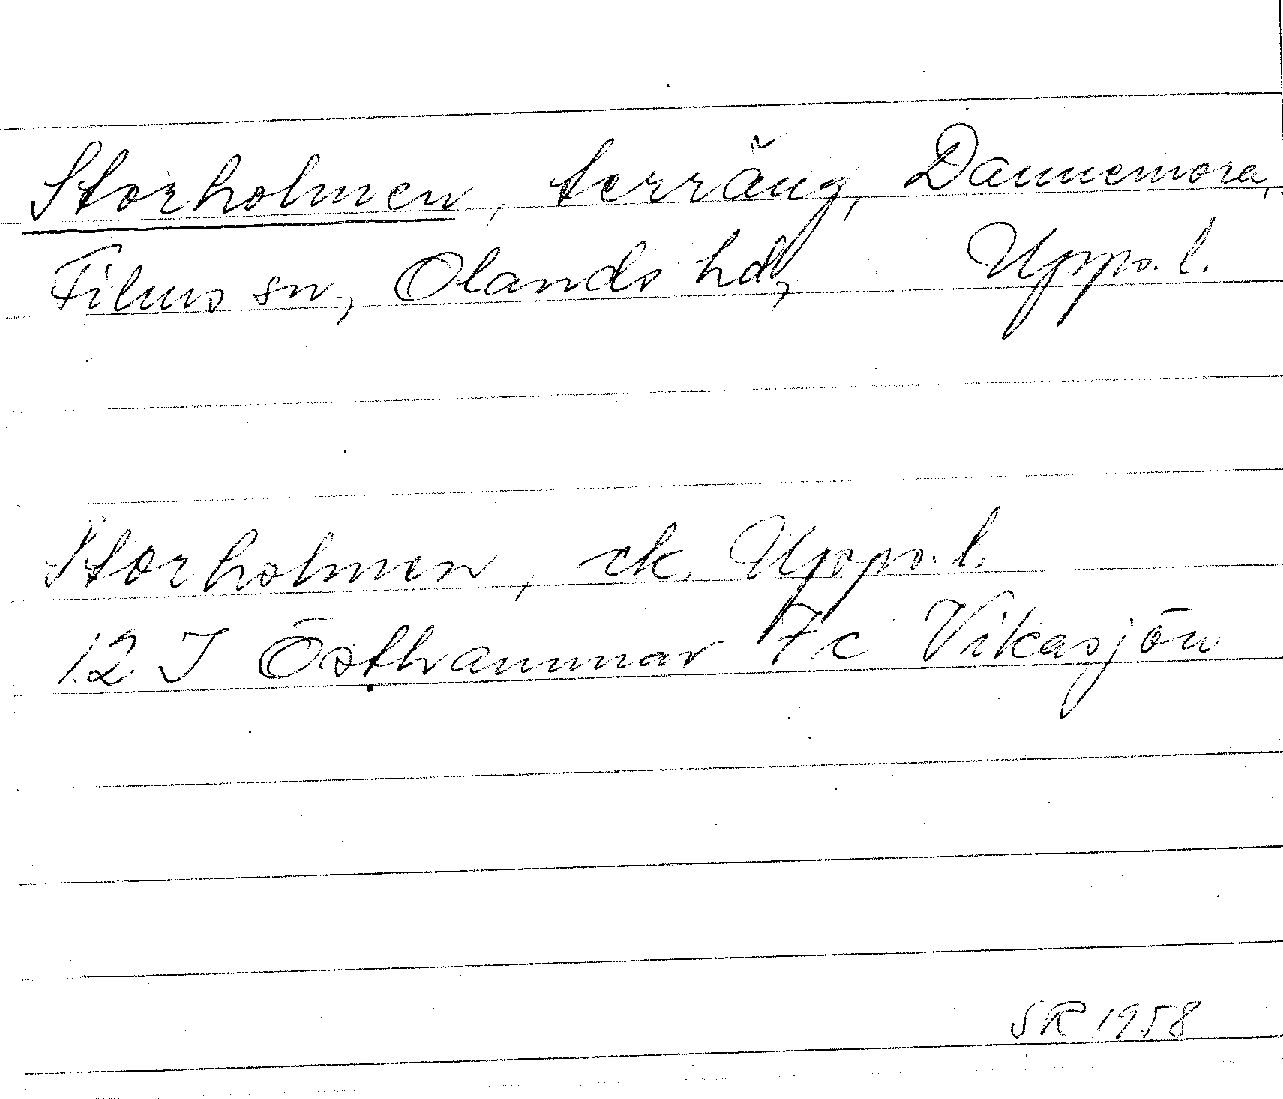 Storholmen, terräng, Dannemora,
Films sn, Olands hd, Upps. l.
Storholmen, ek. Upps. l.
12 I Östhammar 7c Vikasjön
SR 1958